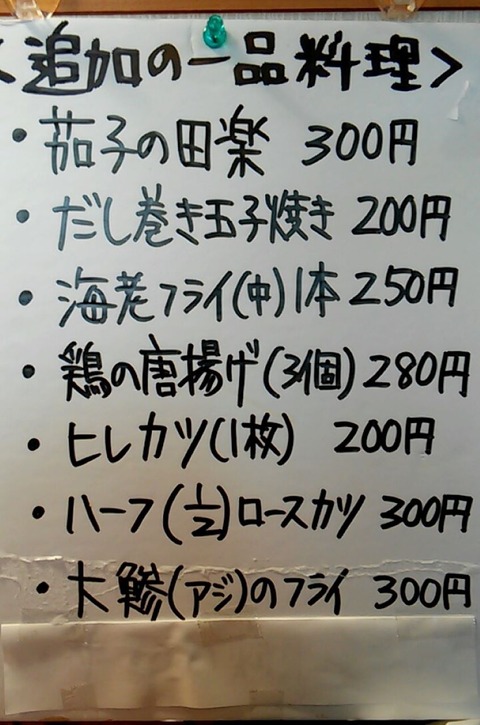 <追加の一品料理>
・茄子の田楽 300円
・だし巻き玉子焼き 200円
・海老フライ(中)1本 250円
・鶏の唐揚げ(3個) 280円
・ヒレカツ(1枚) 200円
・ハーフ(1/2)ロースカツ 300円
・大鯵(アジ)のフライ 300円